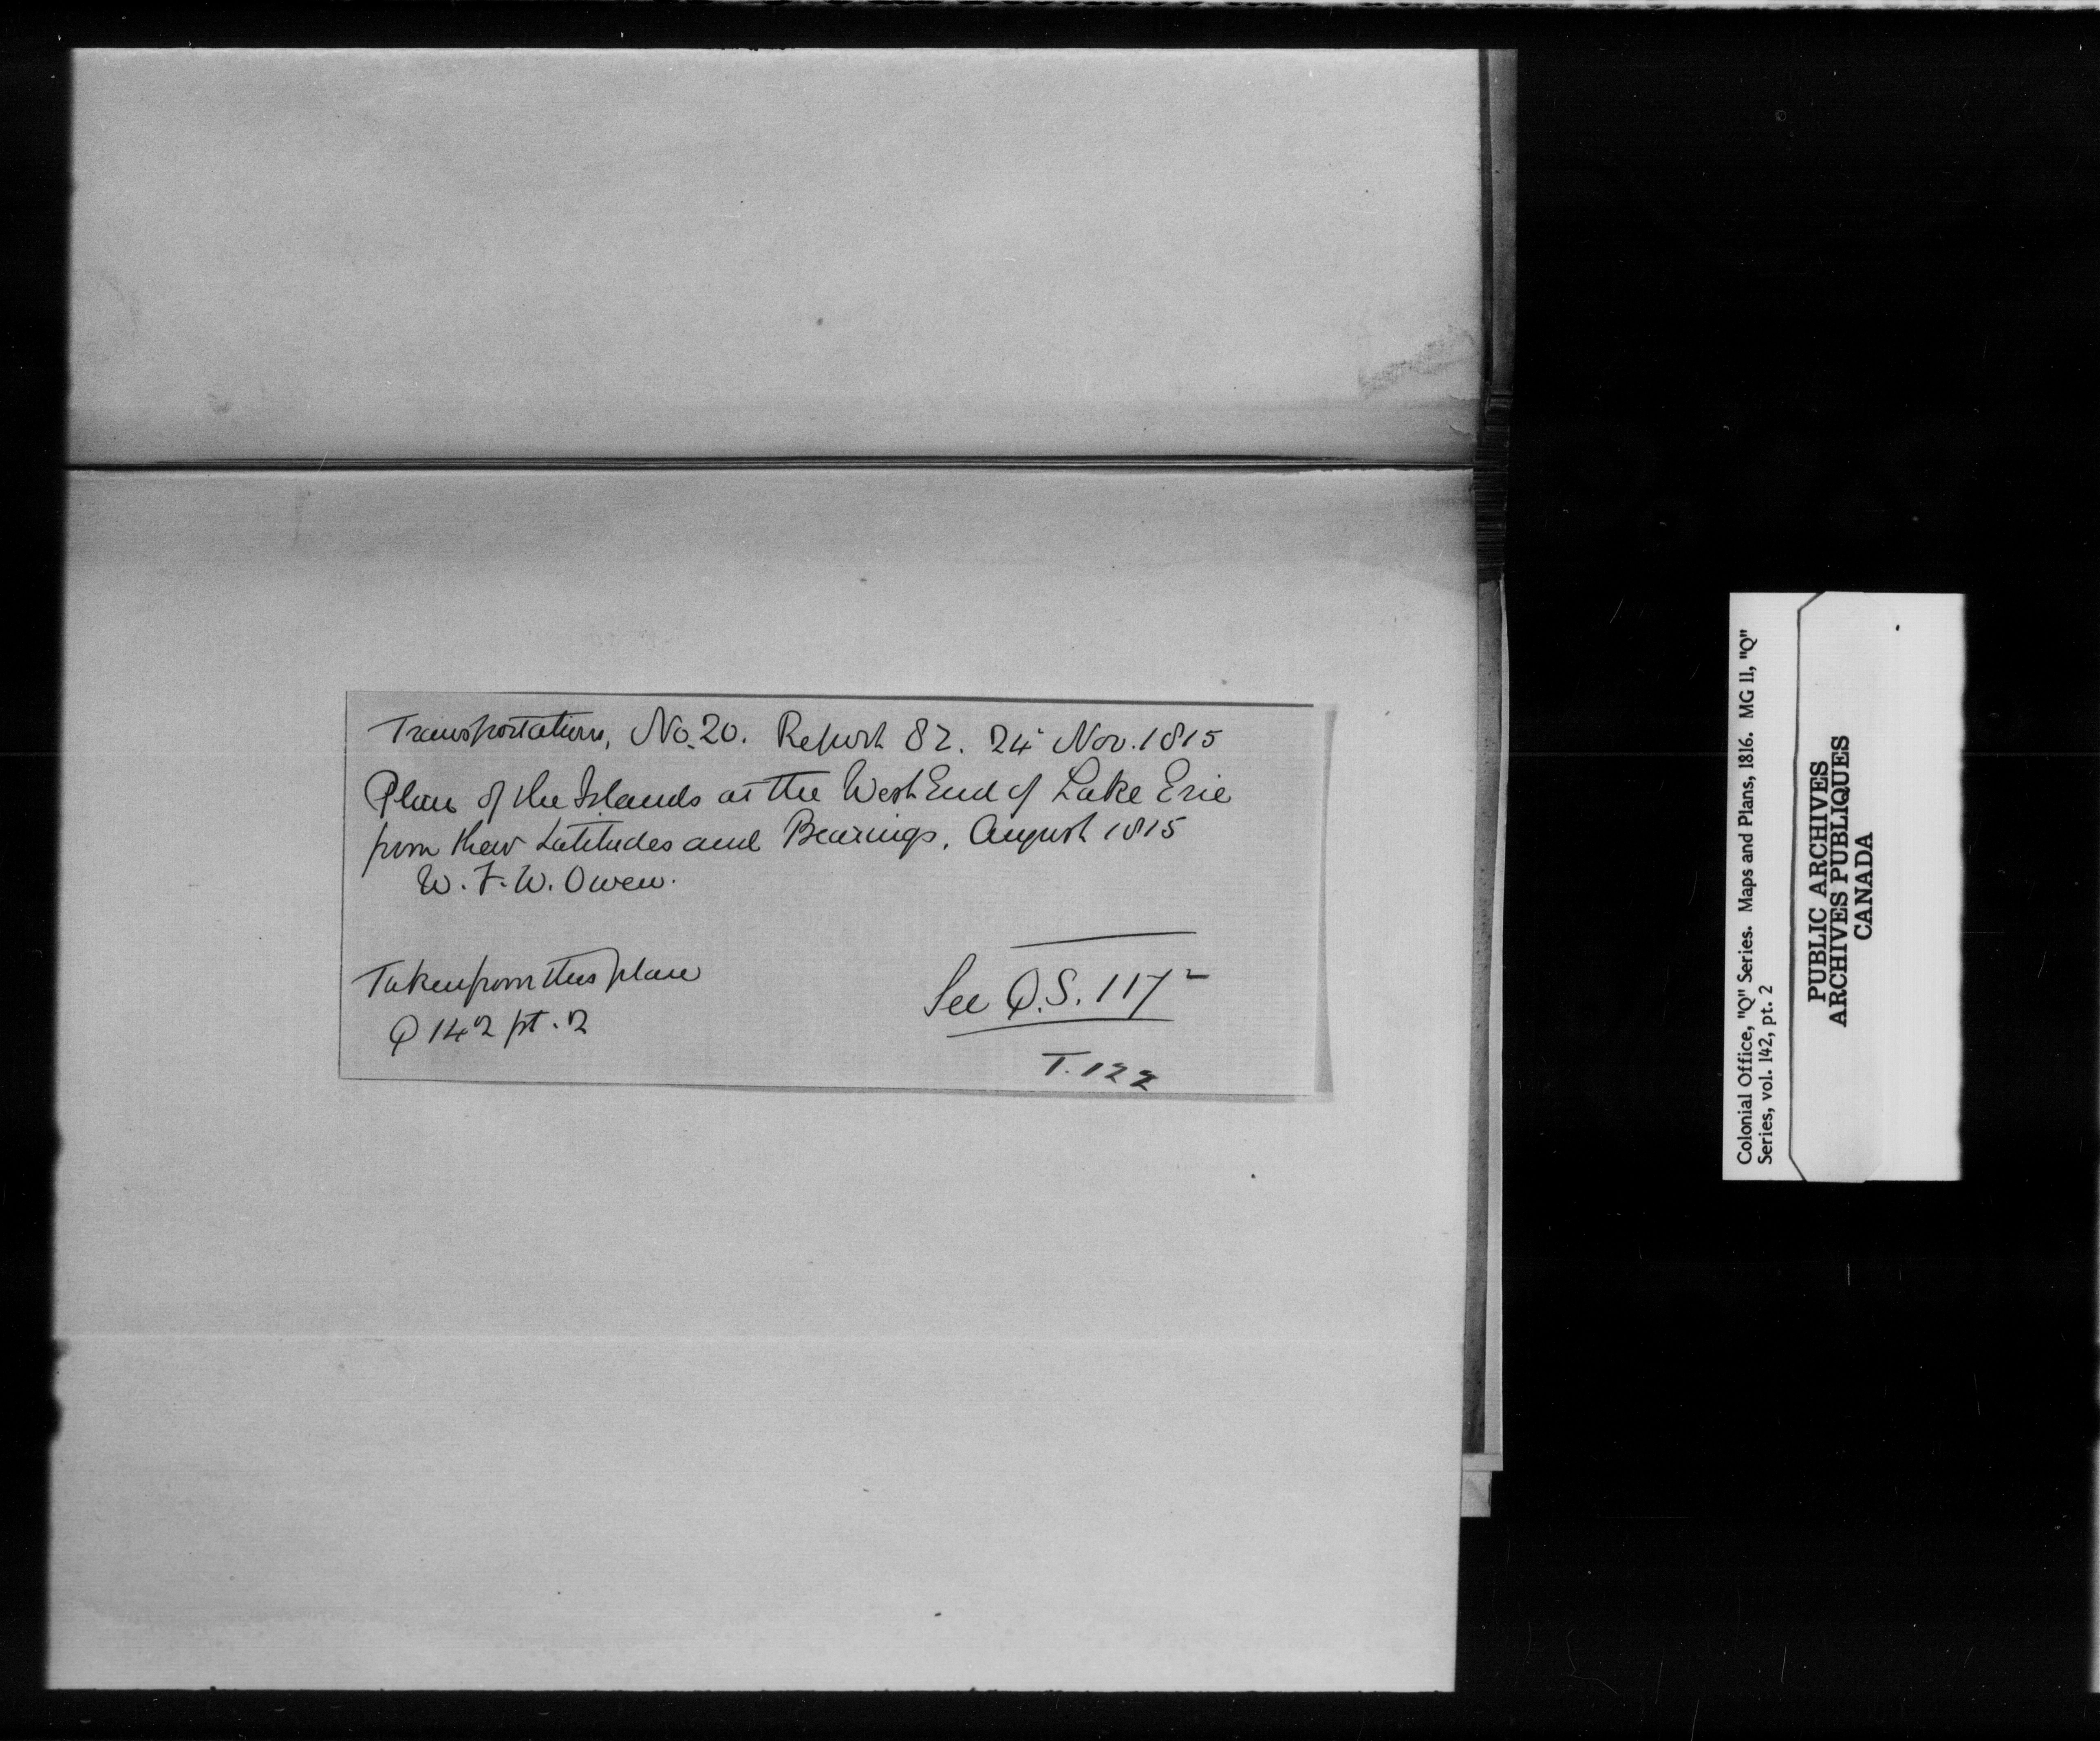 Transportation, No. 20. Report 82. 24 Nov. 1815
Plan of the Islands at the West End of Lake Erie
from their Latitudes and Bearings, August 1815
W. F. W. Owen.
Taken from this place
Q 142 pt. 2
See Q.S. 117
T. 122
Colonial Office, "Q" Series. Maps and Plans, 1816. MG 11, "Q"
Series, vol. 142, pt. 2
PUBLIC ARCHIVES
ARCHIVES PUBLIQUES
CANADA